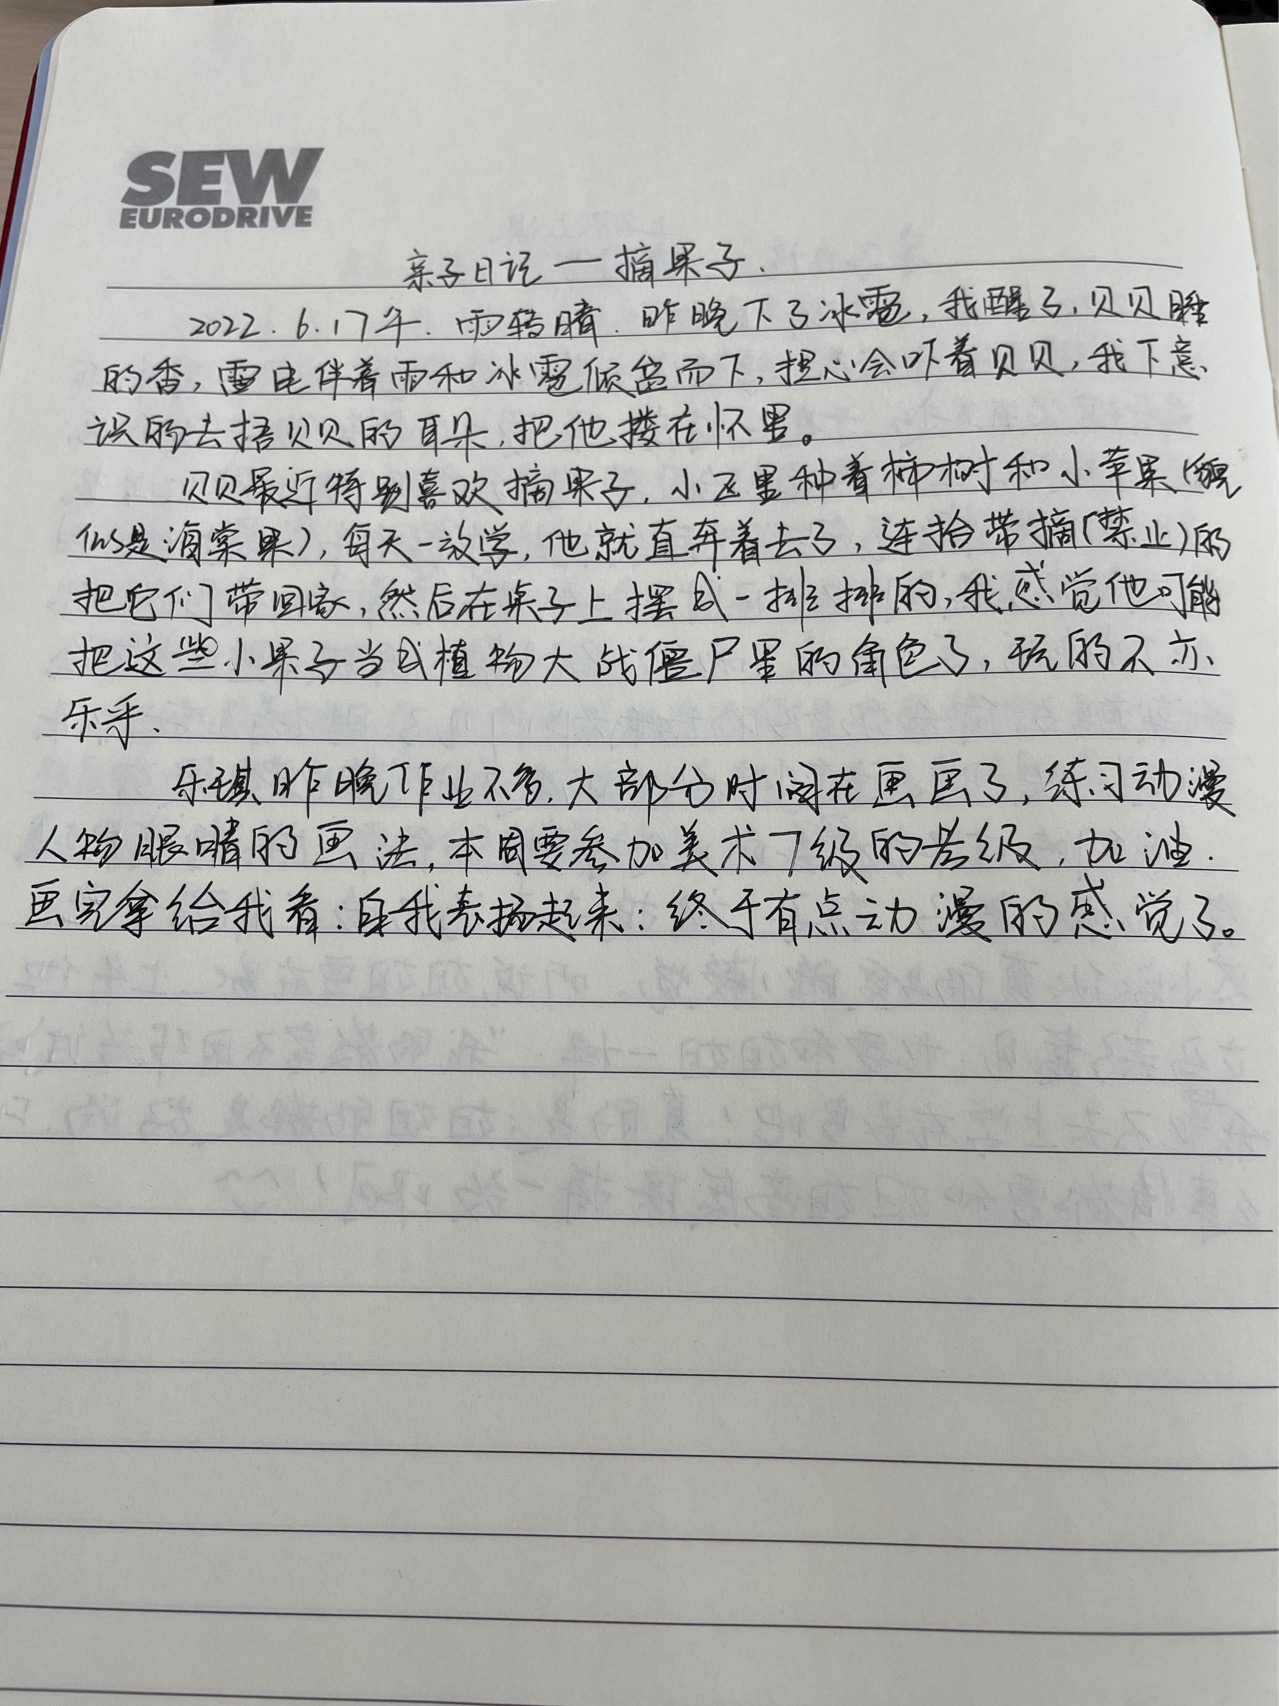 SEW
EURODRIVE
亲子日记一摘果子.
2022.6.17年.雨转晴.昨晚下了冰雹,我醒了,贝贝睡
的香,雷电伴着雨和冰雹倾盆而下,担心会吓着贝贝,我下意
识的去捂贝贝的耳朵,把他搂在怀里。
贝贝最近特别喜欢摘果子,小区里种着柿树和小苹果(貌
似是海棠果),每天一放学,他就直奔着去了,连拾带摘(禁止)的
把它们带回家,然后在桌子上摆成一排排的,我感觉他可能
把这些小果子当成植物大战僵尸里的角色了,玩的不亦
乐乎.
乐琪昨晚作业不多,大部分时间在画画了,练习动漫
人物眼睛的画法,本周要参加美术7级的考级,加油.
画完拿给我看:自我表扬起来:终于有点动漫的感觉了。